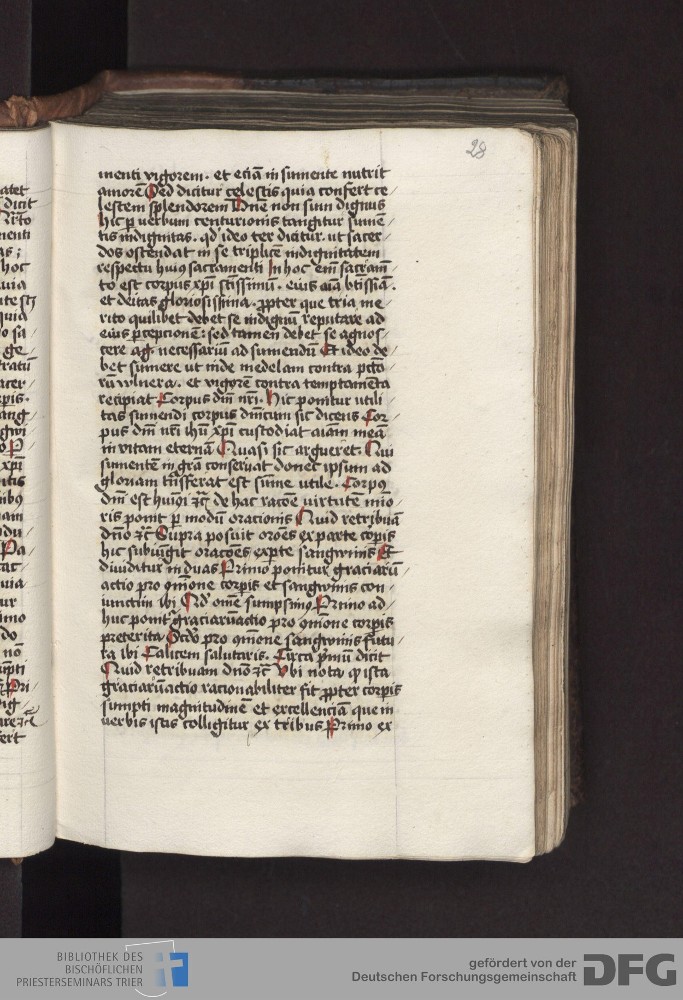 28
menti vigorem. et eciā in sumente nutrit
amorē Sed dicitur celestis quia confert ce
lestem splendorem Dn̄e non sum dignus
hic ꝑ verbum centurionis tangitur sumē
tis indignitas. qd ideo ter dicitur. ut sacer
dos ostendat in se triplicē indignitatem
respectu huiꝰ sacramenti In hoc em̄ sacram̄
to est corpus xp̄i sc̄issimū. eiꝰ aīa bt̄issīa.
et deitas gloriosissima. ꝓpter que tria me
rito quilibet debet se indignū reputare ad
eius ꝑcepcionē: sed tamen debet se agnos
cere necessariū ad sumendū Et ideo de
bet sumere ut inde medelam contra pctō
rū vlnera. et vigorē contra temptamēta
recipiat Corpus dn̄i nr̄i. hic ponitur utili
tas sumendi corpus dn̄icum sic dicens Cor
pus dn̄i nr̄i ih̄u xp̄i custodiat aīam meā
in vitam eternā Quasi sic argueret. Qui
sumentē in grā conseruat donec ipsum ad
gloriam tn̄sferat est sume utile. Corpꝰ
dn̄i est huiꝰi ꝛc̄ de hac racōe virtutē
ris ponit ꝑ modū oracionis Quid retribuā
dn̄o ꝛc̄ Supra posuit orōes ex parte corꝑis
hic subiūgit oracōes exꝑte sangwinis Et
diuiditur in duas Primo ponitur graciarū
actio pro corꝑis et sangwinis con
iunctim ibi Qd̄ ore sumpsimꝰ Primo ad
huc ponitʳ graciarūactio pro corꝑis
preterita Scdō pro sangwinis futu
ra ibi Calicem salutaris. Circa p̄mū dicit
Quid retribuam dn̄o ꝛc̄ Vbi nota ꝙ ista
graciarūactio racionabiliter fit ꝓpter corꝑis
sumpti magnitudinē et excellenciam que in
verbis istis colligitur ex tribus Primo ex
BIBLIOTHEK DES
BISCHÖFLICHEN
PRIESTERSEMINARS TRIER
gefördert von der
Deutschen Forschungsgemeinschaft
DFG